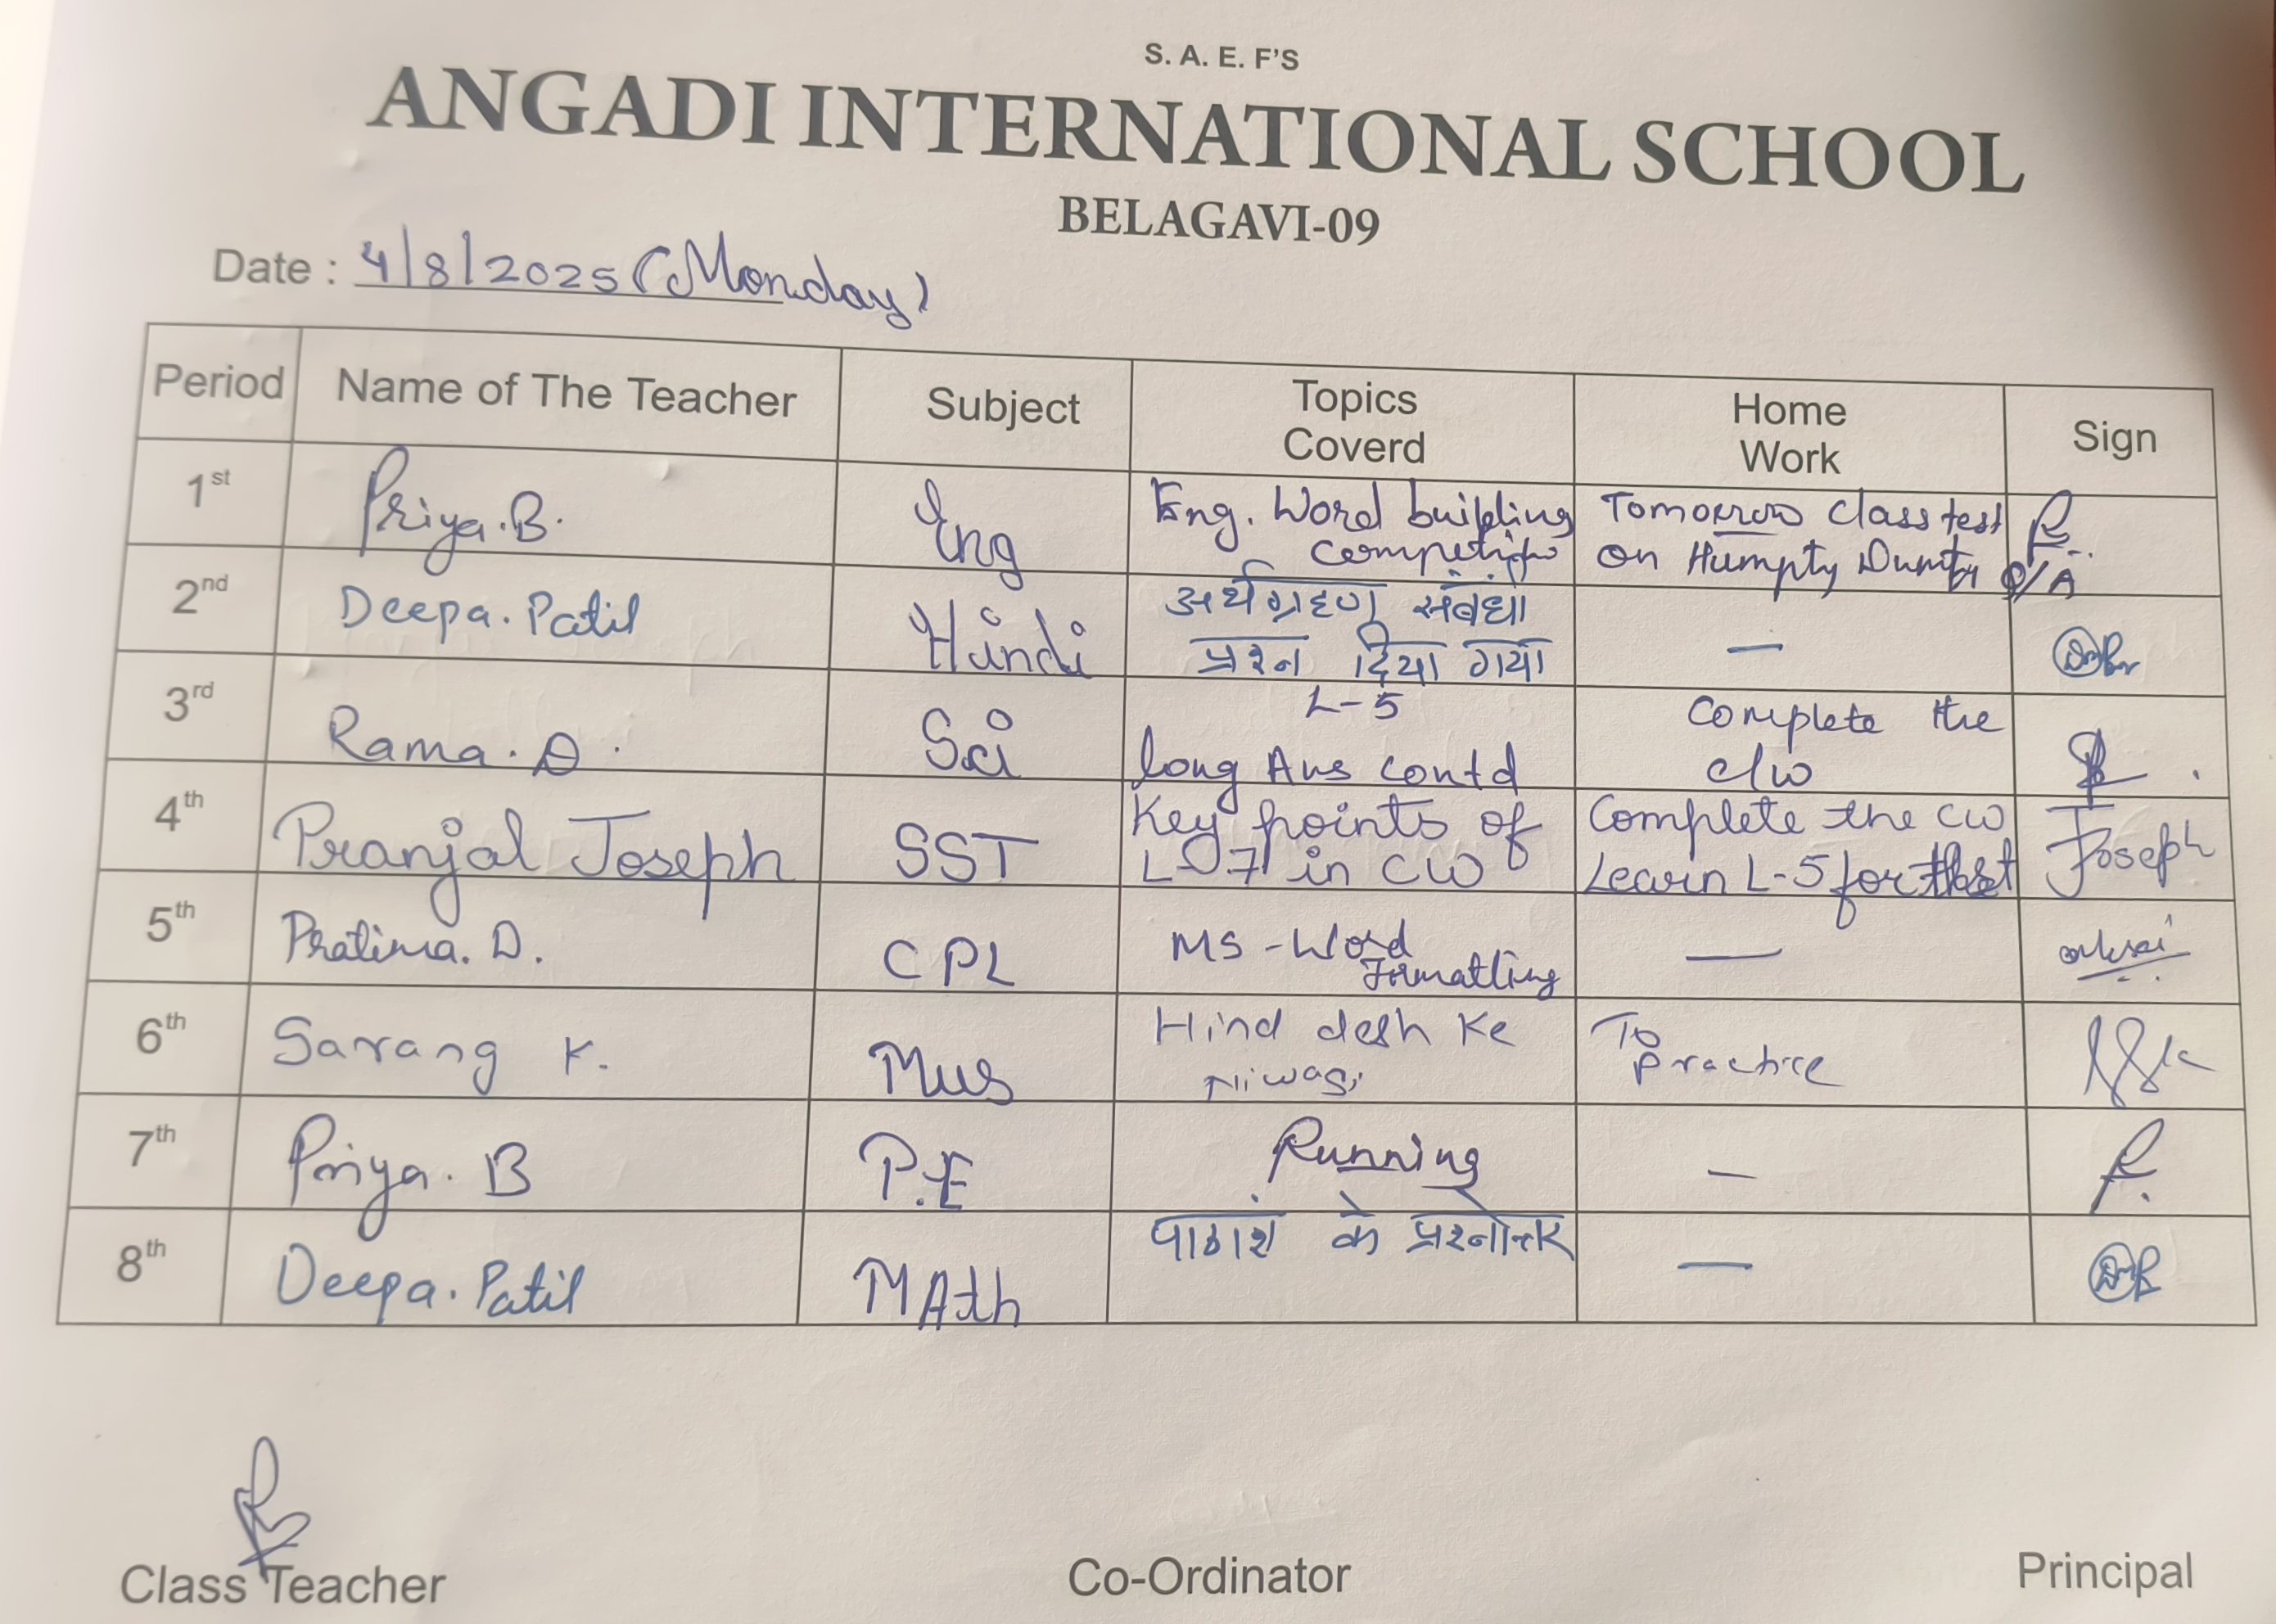 S. A. E. F'S
ANGADI INTERNATIONAL SCHOOL
BELAGAVI-09
Date : 4/8/2025 (Monday)
Period Name of The Teacher Subject Topics Coverd Home Work Sign
1st Priya. B. Eng Eng. Word building Tomorrow class test
competition on Humpty Dumpty Q/A
2nd Deepa. Patil Hindi अर्थग्रहण संबंधी
प्रश्न दिया गया —
3rd Rama. D. Sci L-5 Complete the
long Ans contd c/w
4th Pranjal Joseph SST Key points of Complete the CW Joseph
L-7 in CW Learn L-5 for
5th Pratima. D. CPL MS-Word —
Formatting
6th Sarang K. Mus Hind desh ke To
Niwasi practice
7th Priya. B P.E Running — P.
8th Deepa. Patil MAth पाठांश के प्रश्नोत्तर —
Class Teacher Co-Ordinator Principal